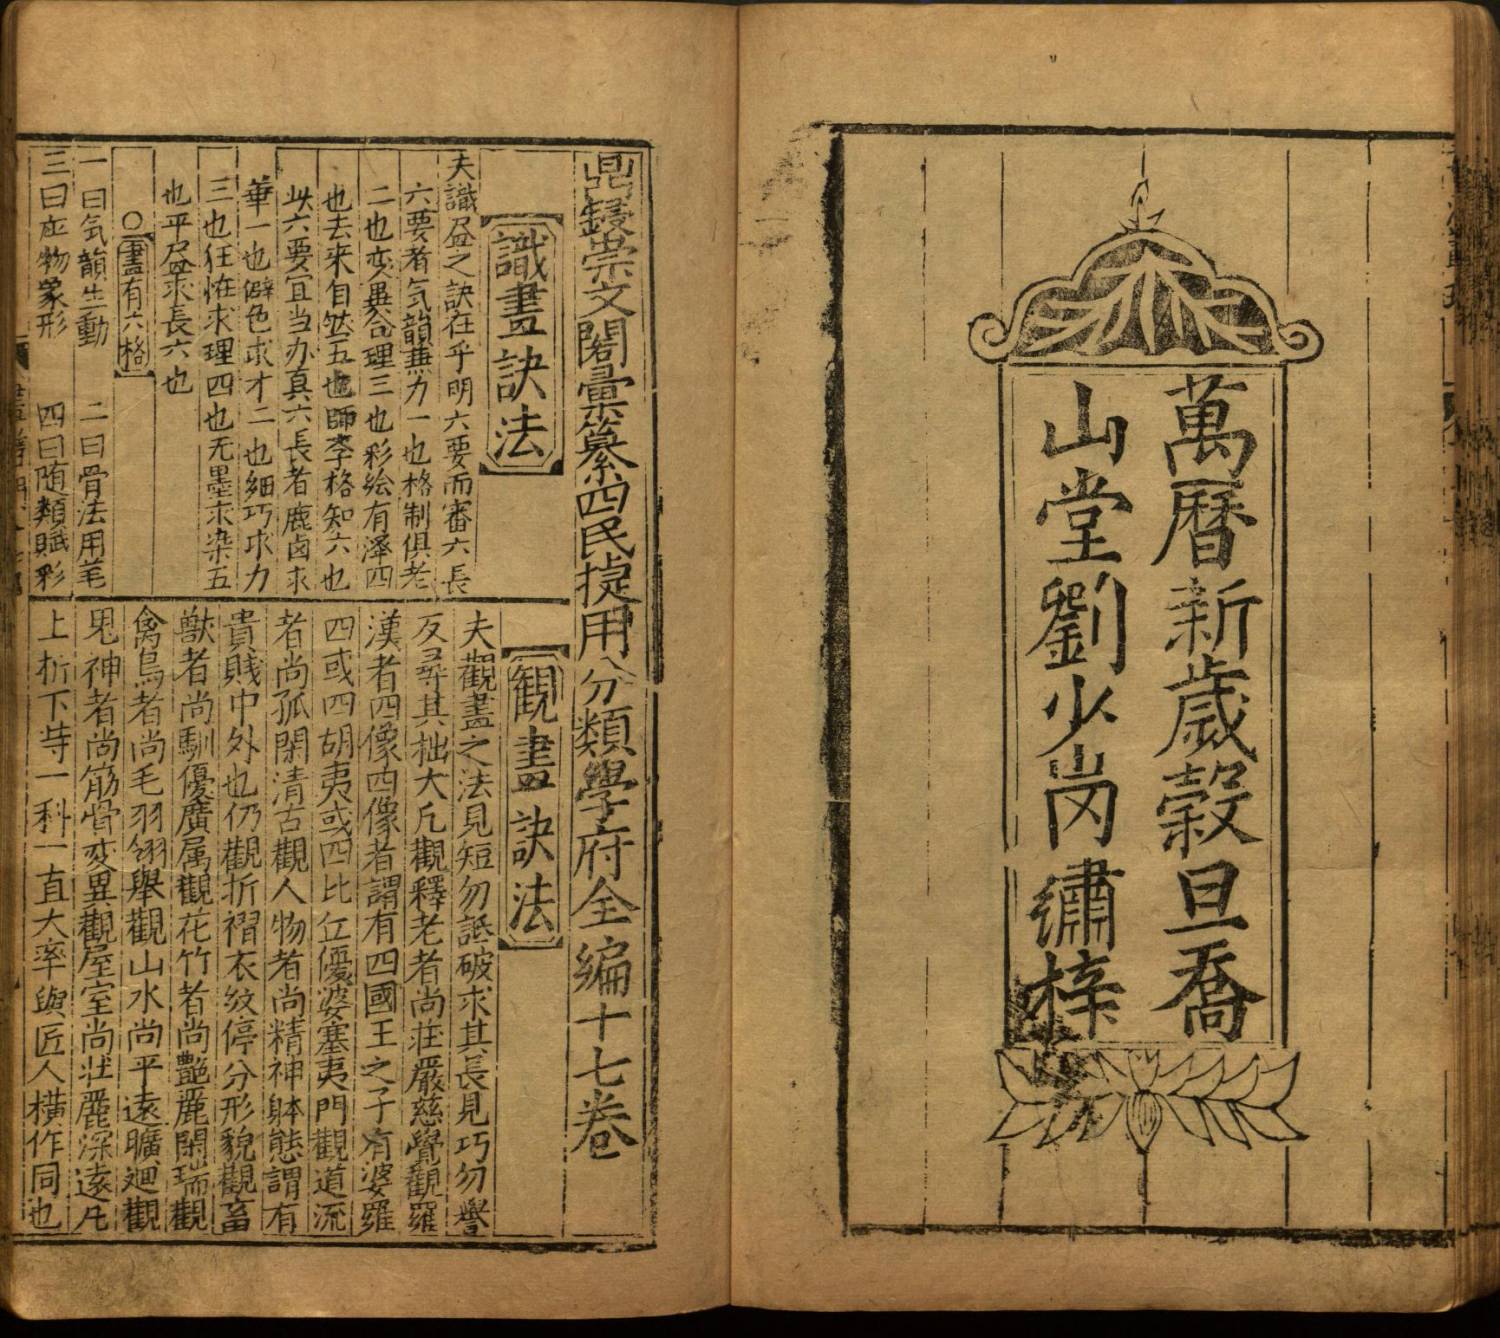 萬曆新歲穀旦喬
山堂劉少崗繡梓
鼎鋟崇文閣彙纂四民捷用分類學府全編十七卷
識畫訣法
夫識畫之訣在乎明六要而審六長
六要者気韻兼力一也格制俱老
二也变異合理三也彩绘有澤四
也去来自然五也師李格知六也
此六要宜当办真六長者鹿卤求
華一也僻色求才二也细巧求力
三也狂怪求理四也无墨求染五
也平画求長六也
○畫有六格
一曰気韻生動 二曰骨法用羊
三曰应物象形 四曰随類賦彩
観畫訣法
夫觀畫之法見短勿詆破求其長見巧勿譽
反尋其拙大凡觀釋老者尚莊嚴慈覺觀羅
漢者四像四像者謂有四國王之子有婆羅
四或四胡夷或四比丘優婆塞夷門觀道流
者尚孤閑清古觀人物者尚精神躰態謂有
貴賎中外也仍觀折褶衣紋停分形貌觀畜
獸者尚馴優廣属觀花竹者尚艷麗閑瑞觀
禽鳥者尚毛羽翎舉觀山水尚平遠曠廻觀
鬼神者尚筋骨変異觀屋室尚壯麗深遠凡
上折下芽一科一直大率與匠人橫作同也